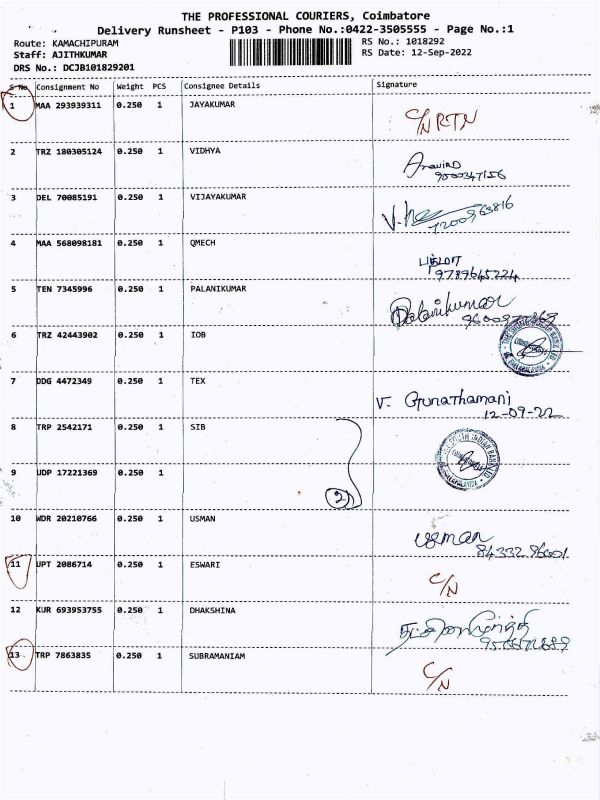 THE PROFESSIONAL COURIERS, Coimbatore
Delivery Runsheet - P103 - Phone No.:0422-3505555 - Page No.:1
Route: KAMACHIPURAM RS No.: 1018292
Staff: AJITHKUMAR RS Date: 12-Sep-2022
DRS No.: DCJB101829201
S No Consignment No Weight PCS Consignee Details Signature
1 MAA 293939311 0.250 1 JAYAKUMAR
C/N RTN
2 TRZ 180305124 0.250 1 VIDHYA
Aravind
9500347156
3 DEL 70085191 0.250 1 VIJAYAKUMAR
4 MAA 568098181 0.250 1 QMECH
பத்மா
9789645224
5 TEN 7345996 0.250 1 PALANIKUMAR
Palanikumar
6 TRZ 42443902 0.250 1 IOB
7 DDG 4472349 0.250 1 TEX
V. Gunathamani
12-09-22
8 TRP 2542171 0.250 1 SIB
9 UDP 17221369 0.250 1
2
10 WDR 20210766 0.250 1 USMAN
usman
11 UPT 2086714 0.250 1 ESWARI
C/N
12 KUR 693953755 0.250 1 DHAKSHINA
13 TRP 7863835 0.250 1 SUBRAMANIAM
C/N